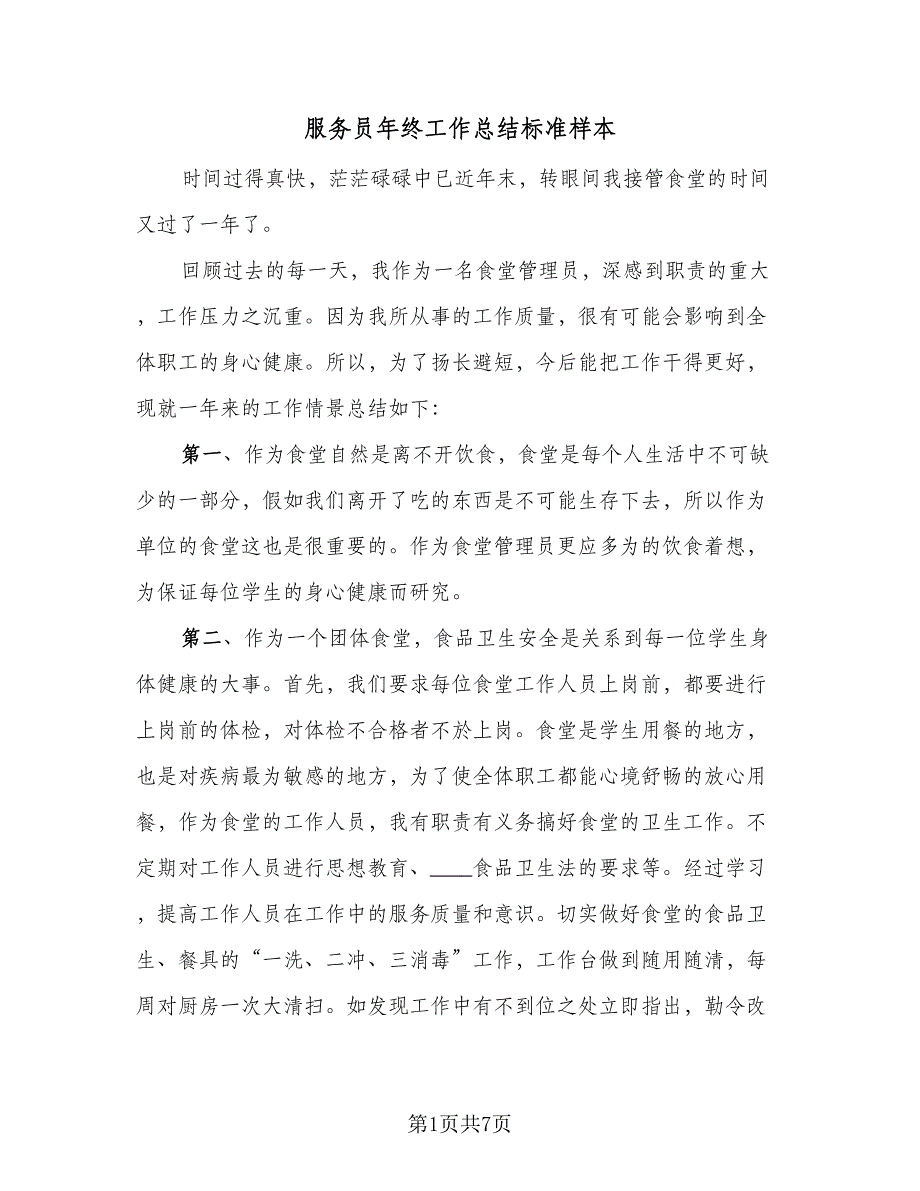 服务员年终工作总结标准样本
时间过得真快，茫茫碌碌中已近年末，转眼间我接管食堂的时间
又过了一年了。
回顾过去的每一天，我作为一名食堂管理员，深感到职责的重大
，工作压力之沉重。因为我所从事的工作质量，很有可能会影响到全
体职工的身心健康。所以，为了扬长避短，今后能把工作干得更好，
现就一年来的工作情景总结如下：
第一、作为食堂自然是离不开饮食，食堂是每个人生活中不可缺
少的一部分，假如我们离开了吃的东西是不可能生存下去，所以作为
单位的食堂这也是很重要的。作为食堂管理员更应多为的饮食着想，
为保证每位学生的身心健康而研究。
第二、作为一个团体食堂，食品卫生安全是关系到每一位学生身
体健康的大事。首先，我们要求每位食堂工作人员上岗前，都要进行
上岗前的体检，对体检不合格者不於上岗。食堂是学生用餐的地方，
也是对疾病最为敏感的地方，为了使全体职工都能心境舒畅的放心用
餐，作为食堂的工作人员，我有职责有义务搞好食堂的卫生工作。不
定期对工作人员进行思想教育、____食品卫生法的要求等。经过学习
，提高工作人员在工作中的服务质量和意识。切实做好食堂的食品卫
生、餐具的“一洗、二冲、三消毒”工作，工作台做到随用随清，每
周对厨房一次大清扫。如发现工作中有不到位之处立即指出，勒令改
第1页共7页